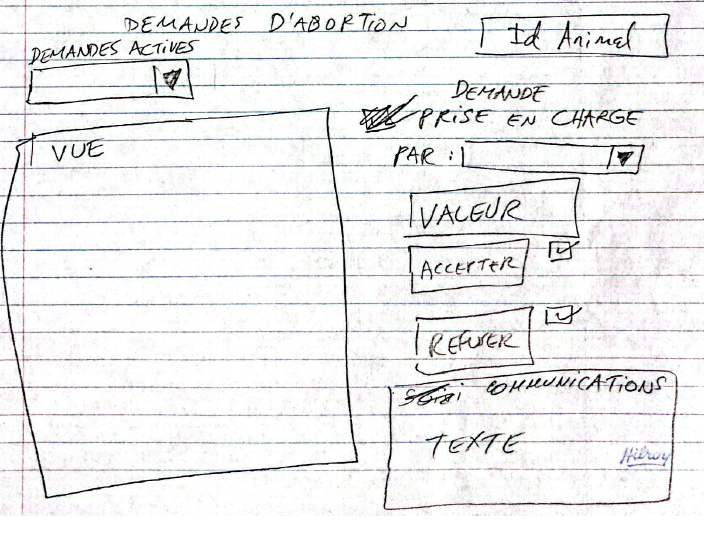 DEMANDES D'ABORTION
Id Animal
DEMANDES ACTIVES
VUE
DEMANDE
PRISE EN CHARGE
PAR :
VALEUR
ACCEPTER
REFUSER
COMMUNICATIONS
TEXTE
Hilroy